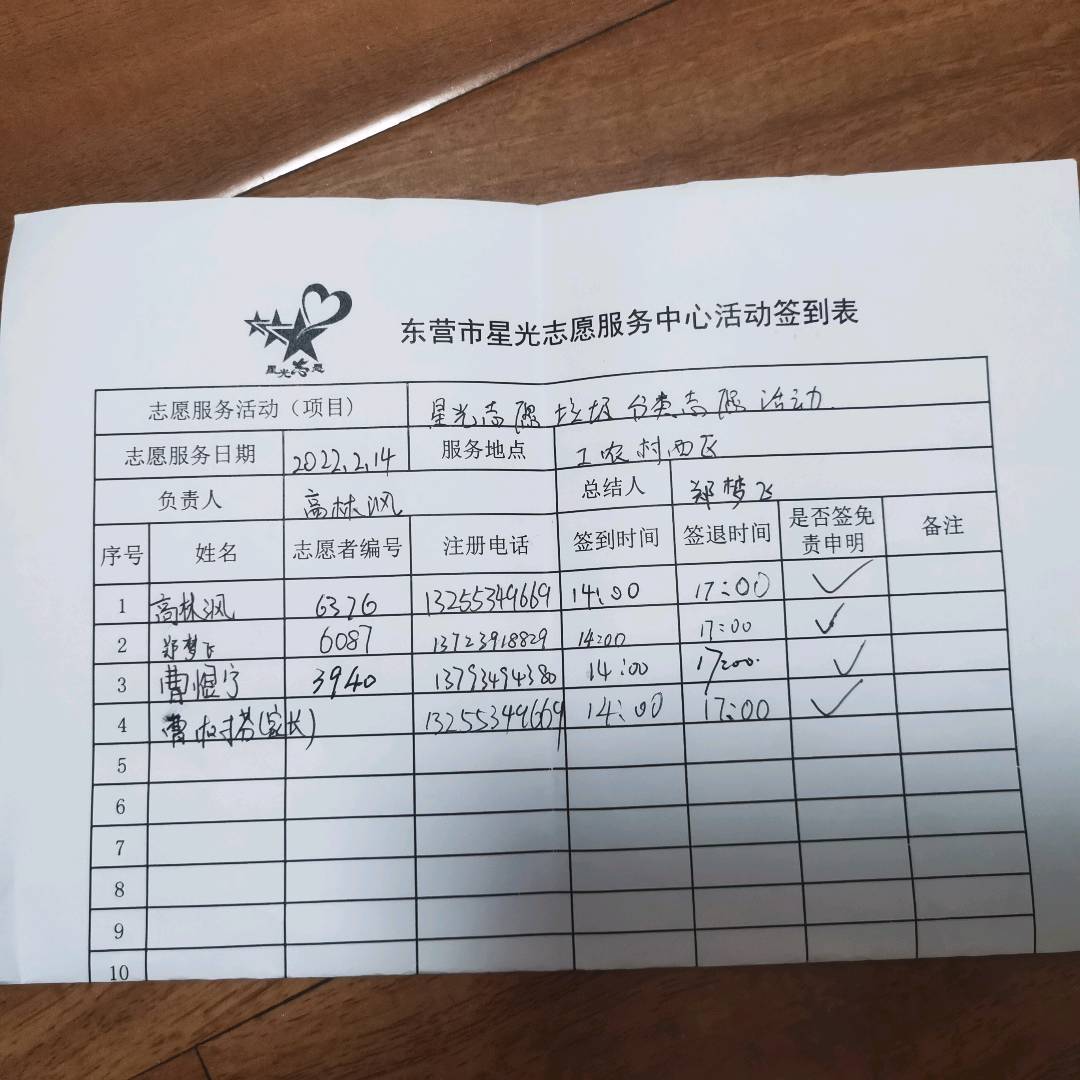 星光志愿
东营市星光志愿服务中心活动签到表
志愿服务活动（项目） 星光志愿垃圾分类志愿活动
志愿服务日期 2022.2.14 服务地点 工农村西区
负责人 高林沨 总结人 郑梦飞
序号 姓名 志愿者编号 注册电话 签到时间 签退时间 是否签免责申明 备注
1 高林沨 6376 13255349669 14:00 17:00 ✓
2 郑梦飞 6087 13723918829 14:00 17:00 ✓
3 曹煜宁 3940 13793494380 14:00 17:00 ✓
4 曹（家长） 13255349669 14:00 17:00 ✓
5
6
7
8
9
10